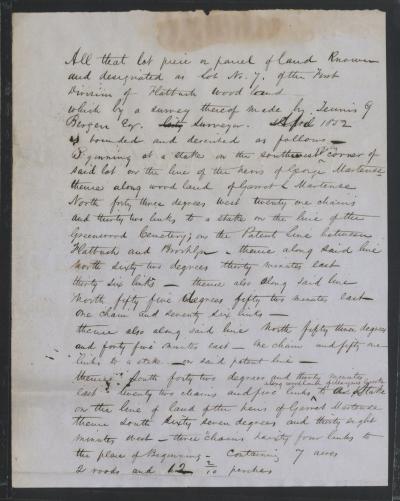 All that lot piece or parcel of land Known
and designated as Lot No. 7. of the First
Division of Flatbush Wood Land
which by a survey thereof made by Teunis G
Bergen Esqr. City Surveyor. April 1852
is bounded and described as follows
Beginning at a stake on the southwest corner of
said lot on the line of the heirs of George Martense
thence along wood land of Garret L Martense
North forty three degrees west twenty one chains
and thirty two links to a stake on the line of the
Greenwood Cemetery; on the Patent Line between
Flatbush and Brooklyn - thence along said line
North sixty two degrees thirty minutes east
thirty six links - thence also along said line
North fifty five degrees fifty two minutes east
one chain and seventy six links -
thence also along said line North fifty three degrees
and forty five minutes east - one chain and fifty one
links to a stake - on said patent line -
thence South forty two degrees and thirty minutes
east twenty two chains and five links to a Stake
along woodland
on the line of land of the heirs of Garret Martense
thence south sixty seven degrees and thirty eight
minutes West - three chains sixty four links to
the place of Beginning - Containing 7 acres
2 roods and 12 2/10 perches